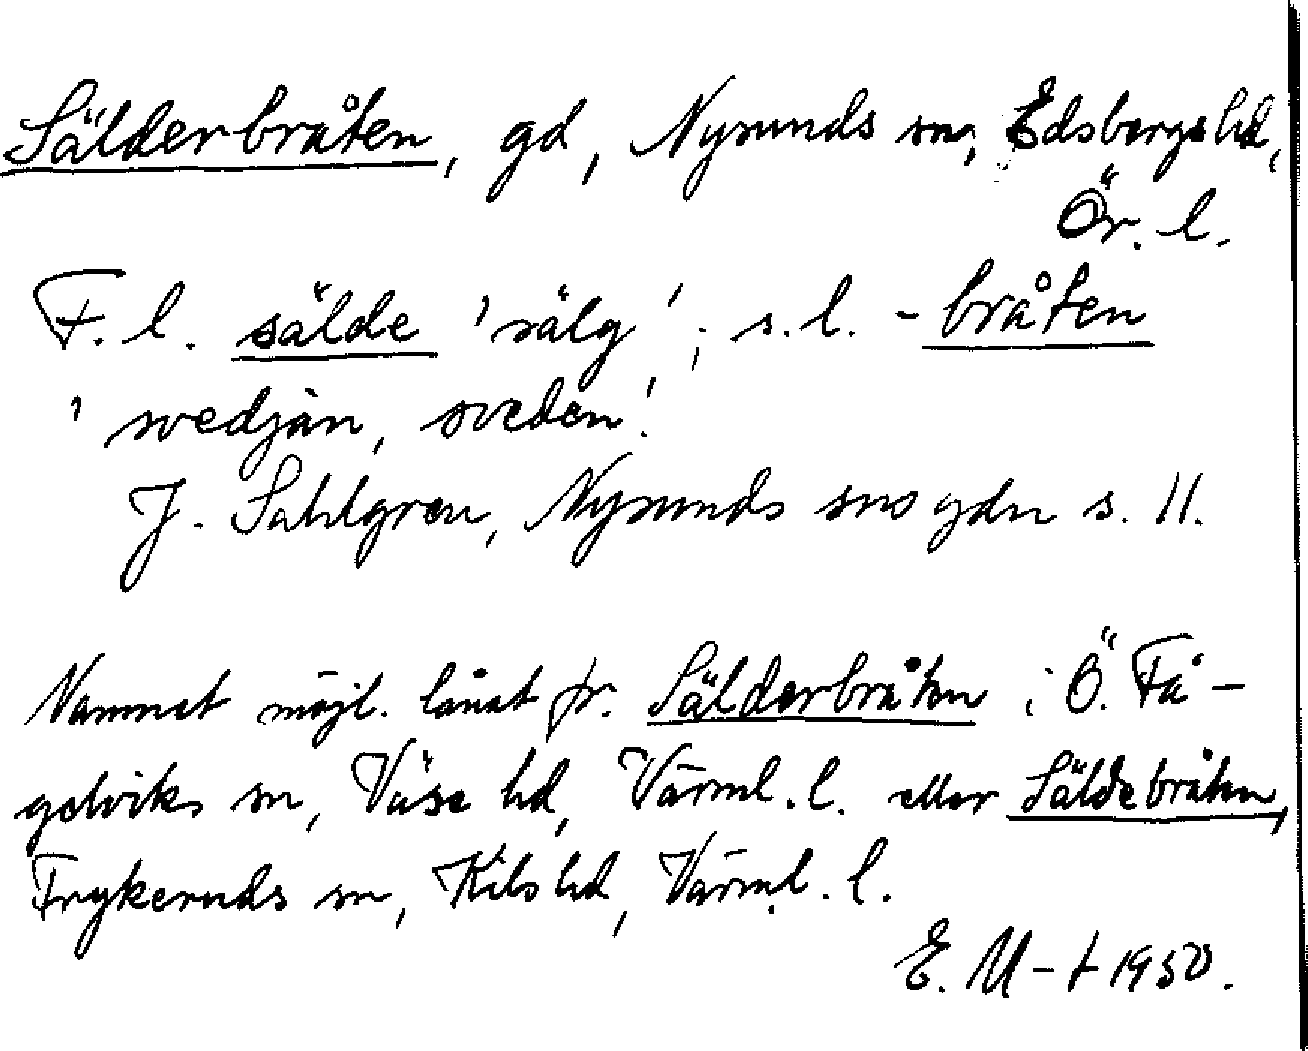 Sälderbråten, gd, Nysunds sn, Edsbergs hd,
Ör. l.
F. l. sälde 'sälg'; s. l. -bråten
'svedjan, sveden'.
J. Sahlgren, Nysunds sns gdn s. 11.
Namnet möjl. lånat fr. Sälderbråten i Ö. Få-
gelviks sn, Väse hd, Värml. l. eller Säldebråten,
Frykeruds sn, Kils hd, Värml. l.
E. M-t 1950.